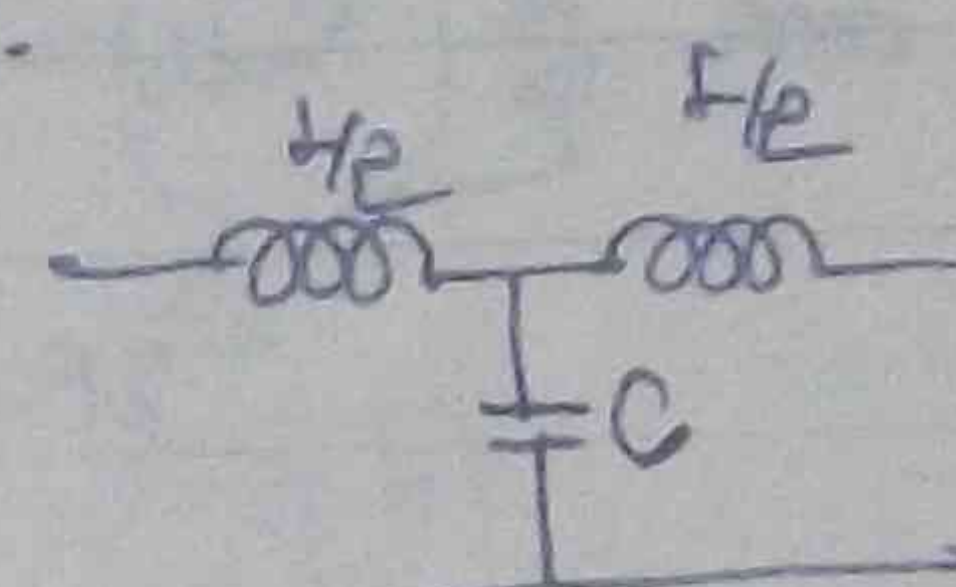 L/2
L/2
C